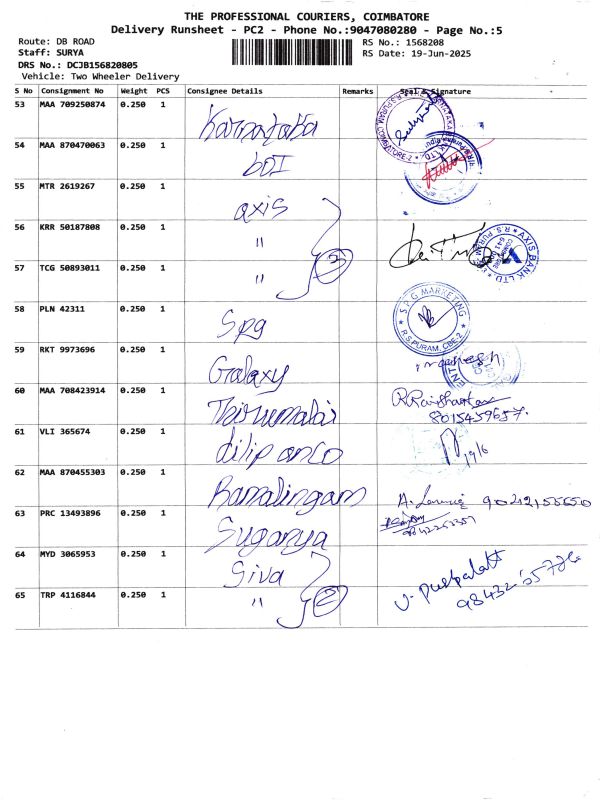 THE PROFESSIONAL COURIERS, COIMBATORE
Delivery Runsheet - PC2 - Phone No.:9047080280 - Page No.:5
Route: DB ROAD
Staff: SURYA
DRS No.: DCJB156820805
Vehicle: Two Wheeler Delivery
RS No.: 1568208
RS Date: 19-Jun-2025
S No Consignment No Weight PCS Consignee Details Remarks Seal & Signature
53 MAA 709250874 0.250 1 Karnataka
54 MAA 870470063 0.250 1 bOI
55 MTR 2619267 0.250 1 axis
56 KRR 50187808 0.250 1 "
57 TCG 50893011 0.250 1 "
58 PLN 42311 0.250 1 Spg S P G MARKETING R.S.PURAM, CBE-2
59 RKT 9973696 0.250 1 Galaxy
60 MAA 708423914 0.250 1 Thirumalai 8015459657.
61 VLI 365674 0.250 1 dilip anco 19/6
62 MAA 870455303 0.250 1 Ramalingam
63 PRC 13493896 0.250 1 Suganya
64 MYD 3065953 0.250 1 Siva
65 TRP 4116844 0.250 1 " 2
AXIS BANK LTD R.S. PURAM